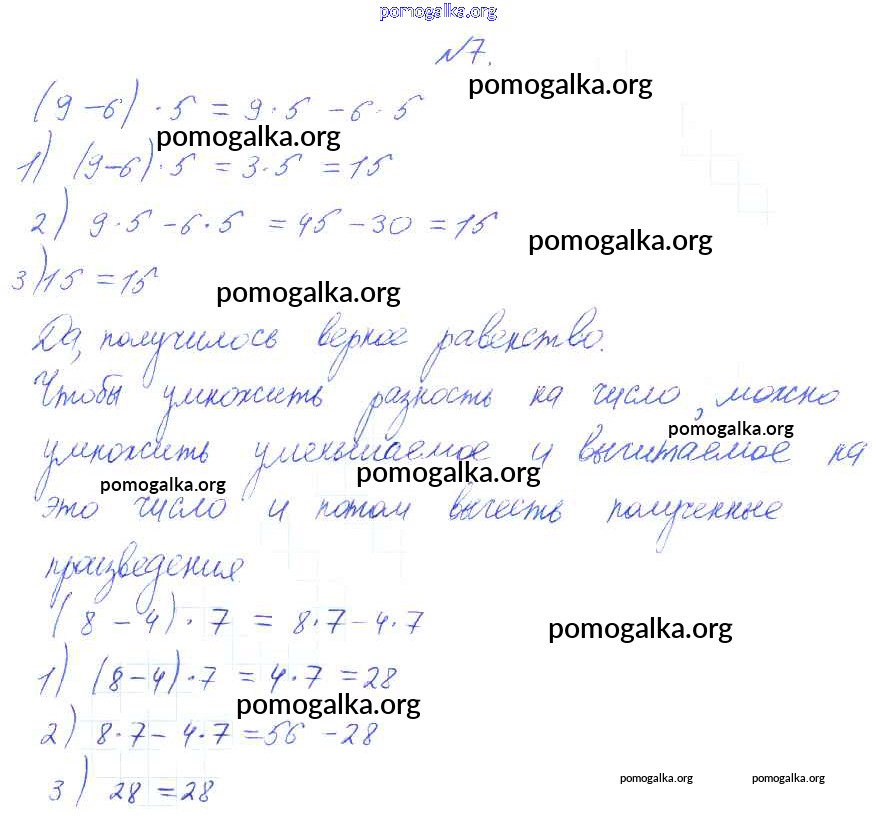 pomogalka.org
№7.
pomogalka.org
(9-6)·5 = 9·5 - 6·5
pomogalka.org
1) (9-6)·5 = 3·5 = 15
2) 9·5 - 6·5 = 45 - 30 = 15
pomogalka.org
3) 15 = 15
pomogalka.org
Да, получилось верное равенство.
Чтобы умножить разность на число, можно
pomogalka.org
умножить уменьшаемое и вычитаемое на
pomogalka.org pomogalka.org
это число и потом вычесть полученные
произведения.
(8-4)·7 = 8·7-4·7
pomogalka.org
1) (8-4)·7 = 4·7 = 28
pomogalka.org
2) 8·7 - 4·7 = 56 - 28
3) 28 = 28
pomogalka.org pomogalka.org